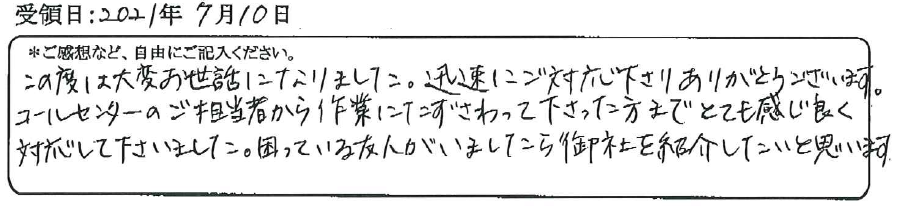 受領日:2021年 7月10日
*ご感想など、自由にご記入ください。
この度は大変お世話になりました。迅速にご対応下さりありがとうございます。
コールセンターのご担当者から作業にたずさわって下さった方までとても感じ良く
対応して下さいました。困っている友人がいましたら御社を紹介したいと思います